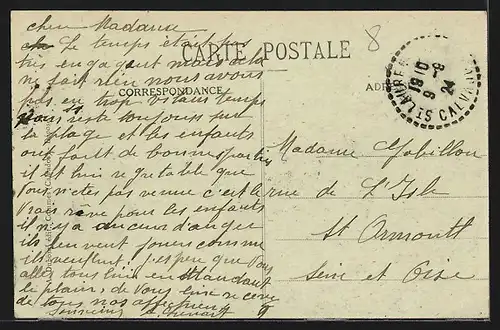 chère Madame
Le temps était pas
très engageant mais cela
ne fait rien nous avons
pas eu trop vilain temps
l'on reste toujours sur
la plage et les enfants
ont fait de bonnes parties
il est bien regrettable que
Vous n'êtes pas venue c'est le
Vrai rêve pour les enfants
il n'y a aucun danger
ils peuvent jouer comme
ils veulent j'espère que Vous
allez tous bien en attendant
le plaisir de Vous lire recevez
de tous nos affectueux
Souvenirs
CARTE POSTALE
CORRESPONDANCE
8
19 10
9 -9
24
CALVADOS
Madame
rue de L'Isle
St
Seine et Oise